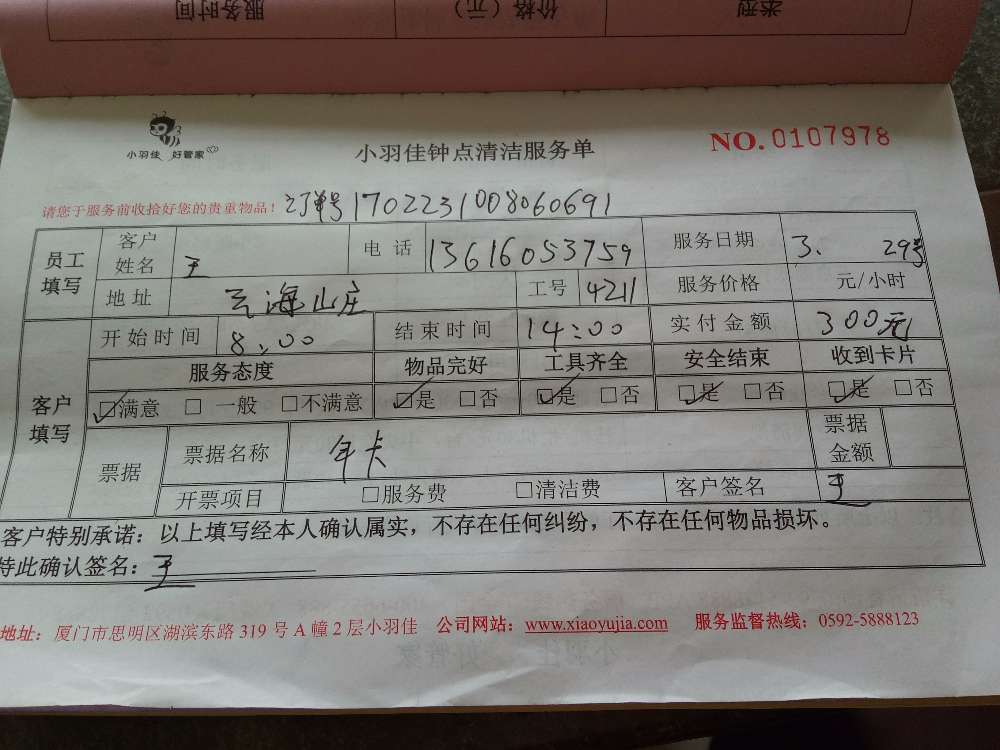 类型 价格（元） 服务时间
小羽佳 好管家
小羽佳钟点清洁服务单
NO. 0107978
请您于服务前收拾好您的贵重物品！ 订单号 1702231008060691
员工填写 客户姓名 王 电话 13616053759 服务日期 3. 29号
地址 云海山庄 工号 4211 服务价格 元/小时
客户填写 开始时间 8:00 结束时间 14:00 实付金额 300元
服务态度 物品完好 工具齐全 安全结束 收到卡片
☑满意 □一般 □不满意 ☑是 □否 ☑是 □否 ☑是 □否 ☑是 □否
票据 票据名称 年卡 票据金额
开票项目 □服务费 □清洁费 客户签名 王
客户特别承诺：以上填写经本人确认属实，不存在任何纠纷，不存在任何物品损坏。
特此确认签名：王
地址：厦门市思明区湖滨东路 319 号 A 幢 2 层小羽佳 公司网站：www.xiaoyujia.com 服务监督热线：0592-5888123